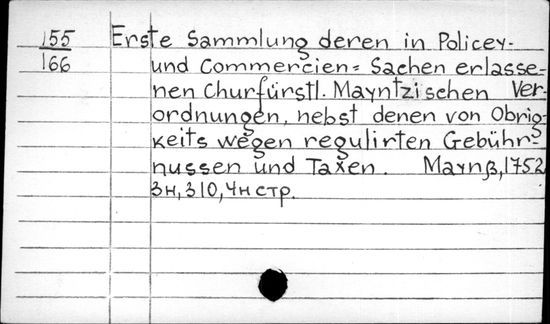 155 Erste Sammlung deren in Policey-
166 und Commercien= Sachen erlasse-
nen Churfürstl. Mayntzischen Ver-
ordnungen, nebst denen von Obrig-
keits wegen regulirten Gebühr-
nussen und Taxen. Maynß, 1752
3н, 310, 4н стр.